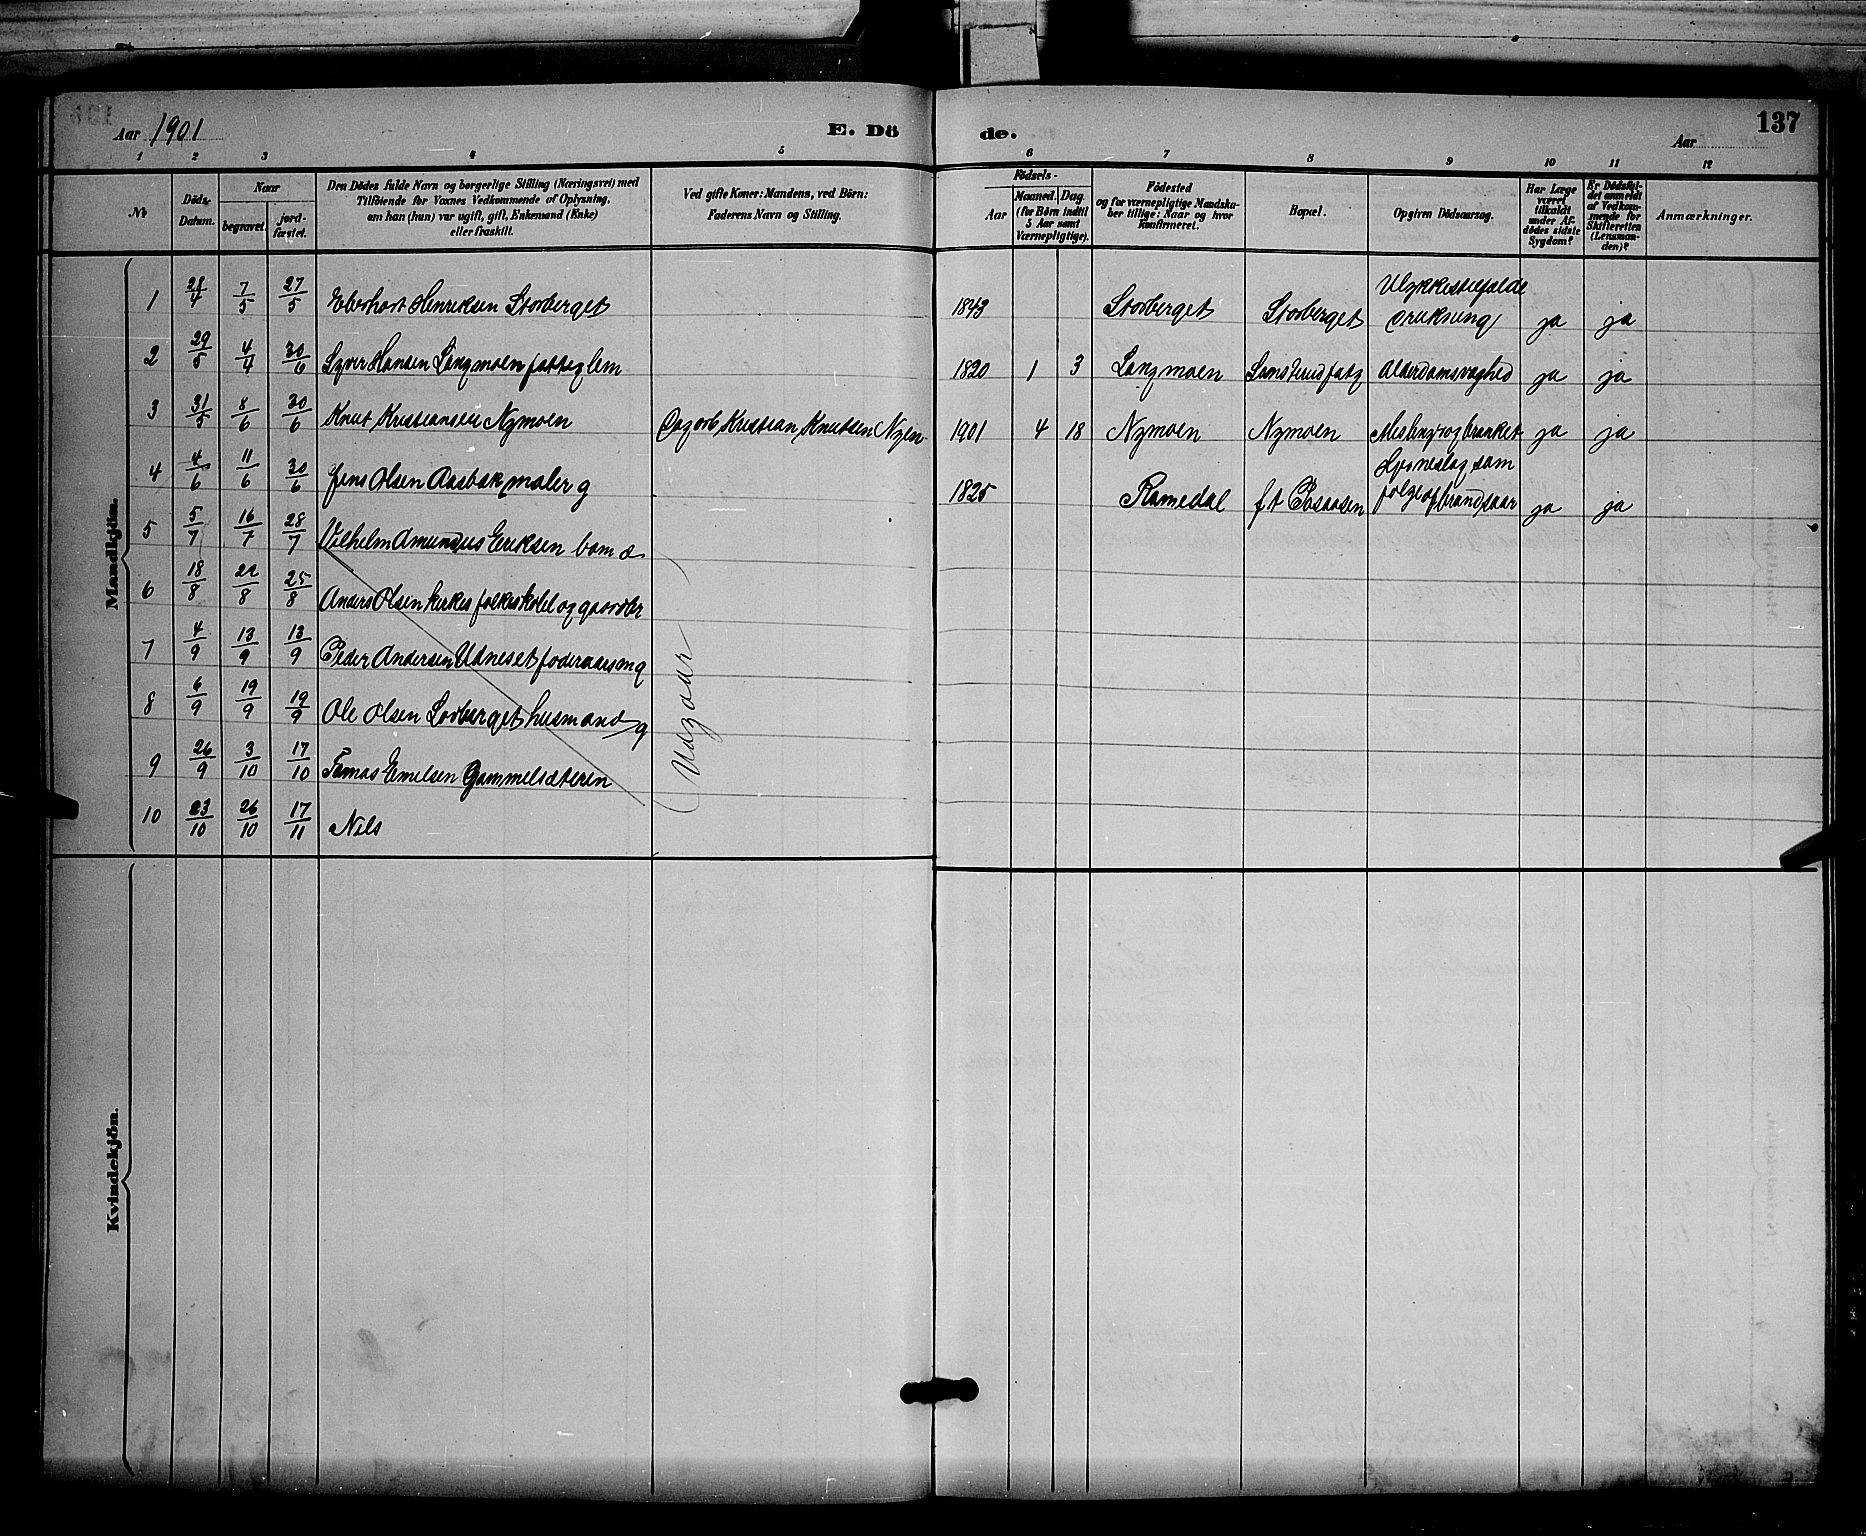 Aar 1901
E. Dö
de.
Aar
137
1 2 3 4 5 6 7 8 9 10 11 12
№
Döds-
Datum.
Naar
begravet.
jord-
fæstet.
Den Dödes fulde Navn og borgerlige Stilling (Næringsvei) med
Tilföiende for Voxnes Vedkommende af Oplysning,
om han (hun) var ugift, gift, Enkemand (Enke)
eller fraskilt.
Ved gifte Koner: Mandens, ved Börn:
Faderens Navn og Stilling.
Födsels-
Aar
Maaned.
Dag.
(for Börn indtil
5 Aar samt
Værnepligtige).
Födested
og for værnepligtige Mandska-
ber tillige: Naar og hvor
konfirmeret.
Bopæl.
Opgiven Dödsaarsag.
Har Læge
været
tilkaldt
under Af-
dödes sidste
Sygdom?
Er Dödsfal-
det anmeldt
af Vedkom-
mende for
Skifteretten
(Lensman-
den)?
Anmærkninger.
Mandkjön.
1 28/4 7/5 27/5 Eberhart Henriksen Storberget 1843 Storberget Storberget Ulykkestilfælde drukning ja ja
2 29/5 4/4 30/6 Syver Hansen Langmoen fattiglem 1820 1 3 Langmoen ja ja
3 31/5 8/6 30/6 Knut Kristiansen Nymoen Dagarb Kristian Knutsen Nyen 1901 4 18 Nymoen Nymoen ja ja
4 4/6 11/6 30/6 Jens Olsen maler g 1825 Ramedal ja ja
5 5/7 16/7 28/7 Vilhelm Amundus Eriksen barn
6 18/8 22/8 25/8 Anders Olsen kirkes og gaardbr
7 4/9 13/9 13/9 Peder Andersen Udneset g
8 6/9 19/9 19/9 Ole Olsen husmand g
9 26/9 3/10 17/10 Tomas Emelsen Gammelsæteren
10 23/10 26/10 17/11 Nils
Udgaar
Kvindekjön.